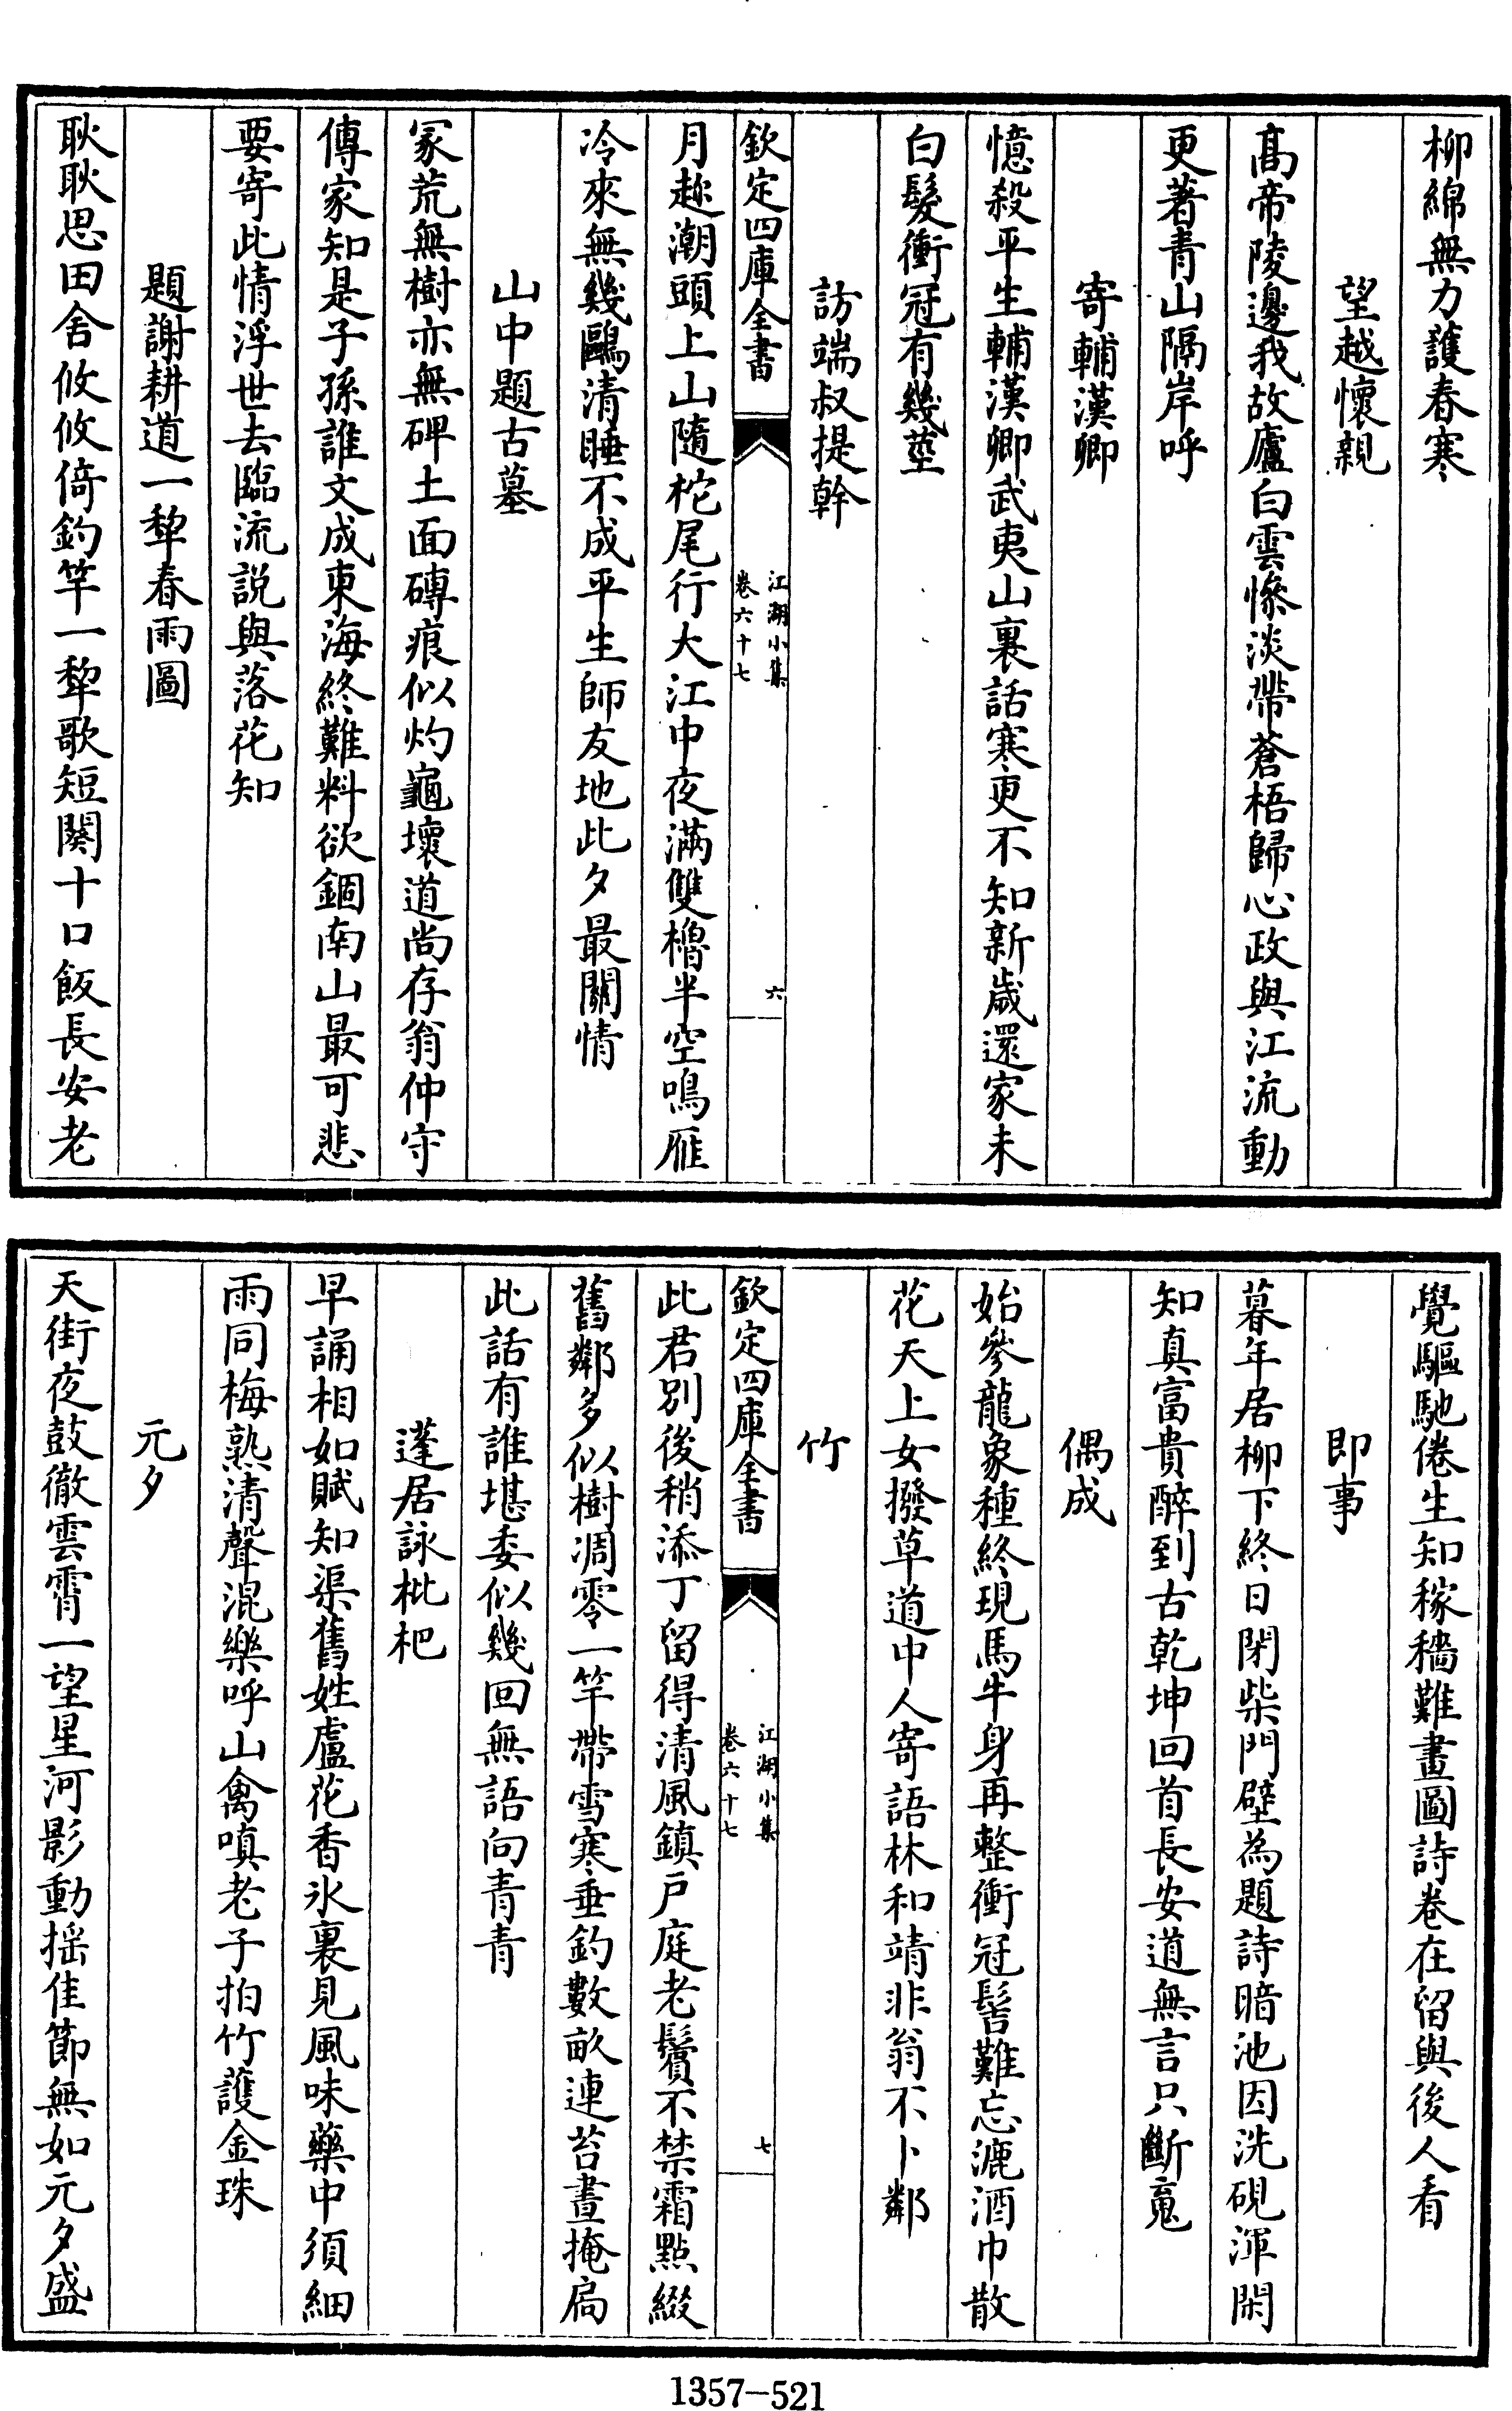 柳綿無力護春寒
望越懷親
髙帝陵邊我故廬白雲慘淡帶蒼梧歸心政與江流動
更著青山隔岸呼
寄輔漢卿
憶殺平生輔漢卿武夷山裏話寒更不知新歲還家未
白髮衝冠有幾莖
訪端叔提幹
欽定四庫全書
江湖小集
卷六十七
六
月趂潮頭上山隨柁尾行大江中夜滿雙櫓半空鳴雁
冷來無幾鷗清睡不成平生師友地此夕最關情
山中題古墓
冢荒無樹亦無碑土面磚痕似灼龜壞道尚存翁仲守
傳家知是子孫誰文成東海終難料欲錮南山最可悲
要寄此情浮世去臨流説與落花知
題謝耕道一犂春雨圖
耿耿思田舍攸攸倚釣竿一犂歌短闋十口飯長安老
覺驅馳倦生知稼穡難畫圖詩卷在留與後人看
即事
暮年居柳下終日閉柴門壁為題詩暗池因洗硯渾閑
知真富貴醉到古乾坤回首長安道無言只斷䰟
偶成
始參龍象種終現馬牛身再整衝冠髻難忘漉酒巾散
花天上女撥草道中人寄語林和靖非翁不卜鄰
竹
欽定四庫全書
江湖小集
卷六十七
七
此君别後稍添丁留得清風鎮户庭老鬢不禁霜點綴
舊鄰多似樹凋零一竿帶雪寒垂釣數畝連苔晝掩扃
此話有誰堪委似幾回無語向青青
蓬居詠枇杷
早誦相如賦知渠舊姓盧花香氷裏見風味藥中須細
雨同梅熟清聲混樂呼山禽嗔老子拍竹護金珠
元夕
天街夜鼓徹雲霄一望星河影動揺佳節無如元夕盛
1357-521